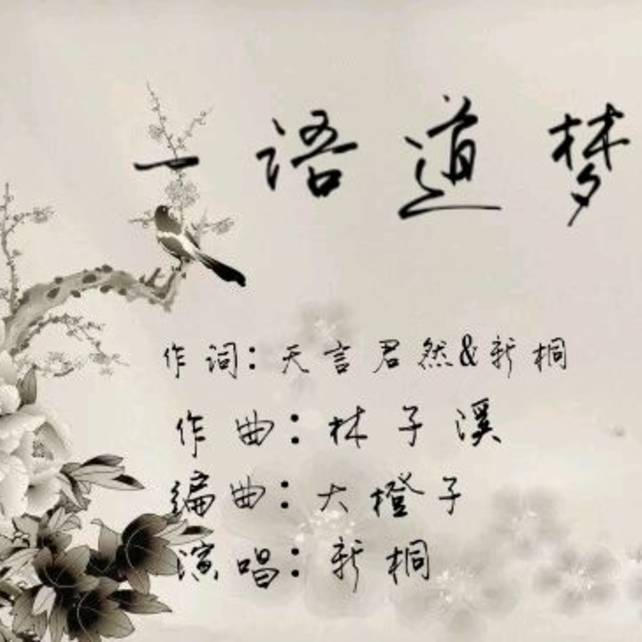 一语道梦
作词:天言君然&新桐
作曲:林子溪
编曲:大橙子
演唱:新桐